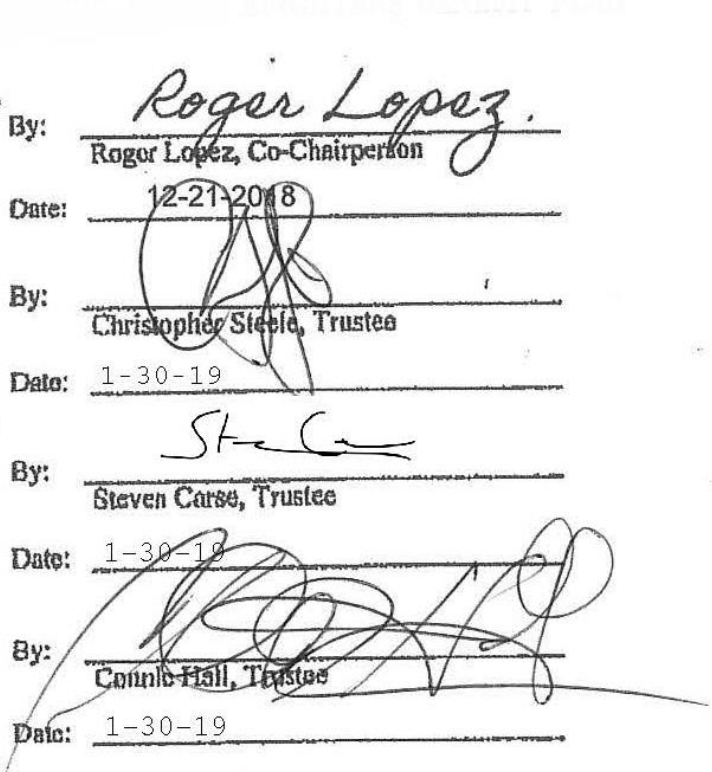 By: Roger Lopez.
Roger Lopez, Co-Chairperson
Date: 12-21-2018
By:
Christopher Steele, Trustee
Date: 1-30-19
By:
Steven Carse, Trustee
Date: 1-30-19
By:
Connie Hall, Trustee
Date: 1-30-19